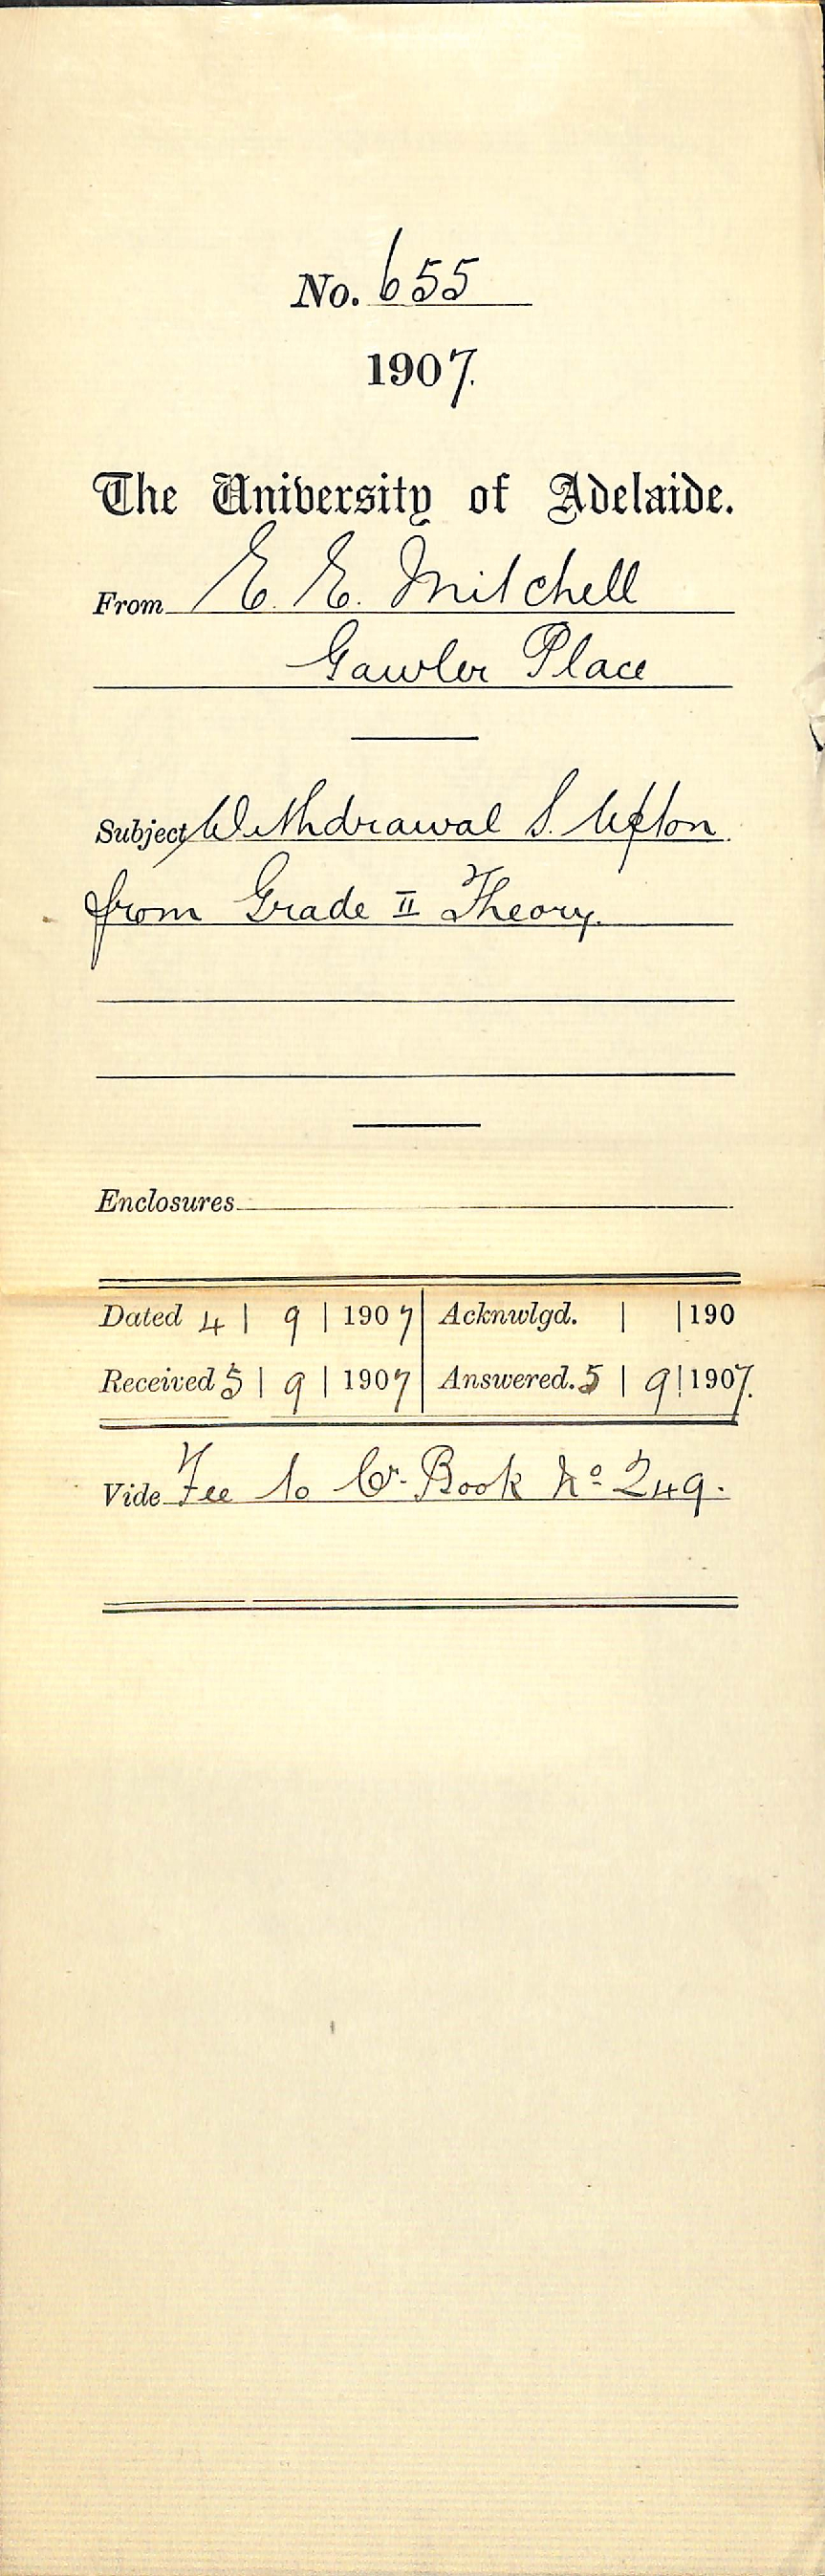 No. 655
1907.
The University of Adelaide.
From E. E. Mitchell
Gawler Place
Subject Withdrawal S. Upton
from Grade II Theory.
Enclosures
Dated 4 | 9 | 1907 | Acknwlgd. | | 190
Received 5 | 9 | 1907 | Answered. 5 | 9 | 1907.
Vide Fee to Cr. Book No 249.